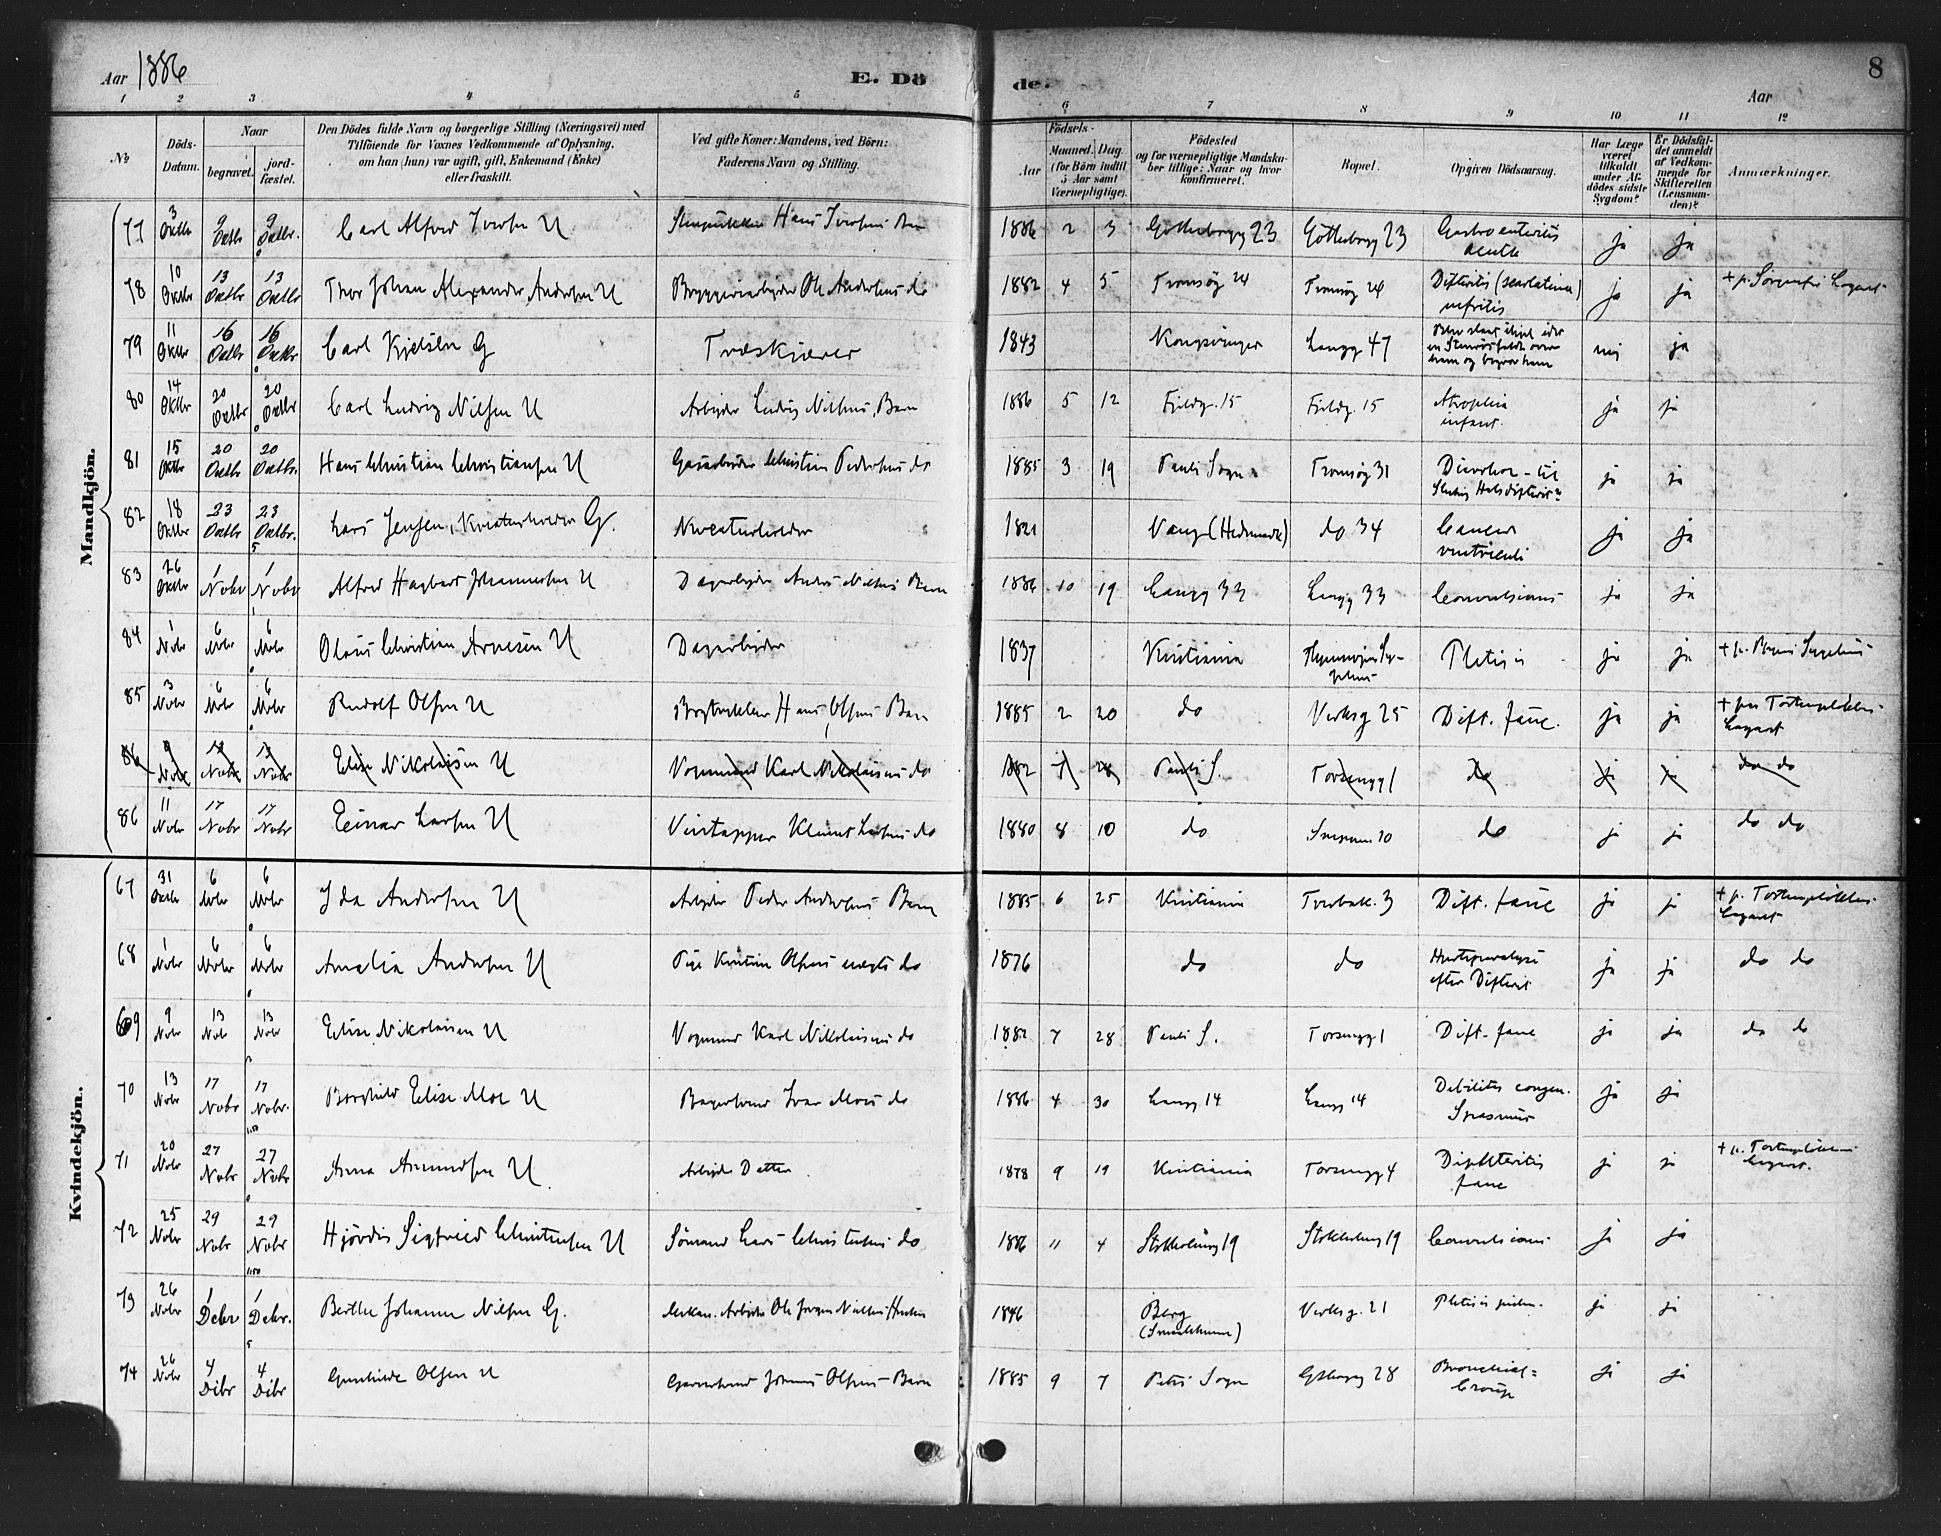 Aar 1886
E. Dö
de.
8
Aar
1 2 3 4 5 6 7 8 9 10 11 12
No
Döds-Datum.
Naar
begravet.
jord-fæstet.
Den Dödes fulde Navn og borgerlige Stilling (Næringsvei) med
Tilföiende for Voxnes Vedkommende af Oplysning,
om han (hun) var ugift, gift, Enkemand (Enke)
eller fraskilt.
Ved gifte Koner: Mandens, ved Börn:
Faderens Navn og Stilling.
Födsels-
Aar
Maaned. Dag
(for Börn indtil
5 Aar samt
Værnepligtige).
Födested
og for værnepligtige Mandsku-
ber tillige: Naar og hvor
konfirmeret.
Bopæl.
Opgiven Dödsaarsag.
Har Læge
været
tilkaldt
under Af-
dödes sidste
Sygdom?
Er Dödsfal-
det anmeldt
af Vedkom-
mende for
Skifteretten
(Lensman-
den)?
Anmærkninger.
Mandkjön.
77 3 Oktbr 9 Oktbr 9 Oktbr. Carl Alfred Iversen U Hans Iversens Barn 1886 2 3 Gøtteborgg 23 Gøtteborgg 23 Gastroenteritis acuta ja ja
78 10 Oktbr 13 Oktbr 13 Oktbr Thor Johan Alexander Andersen U Bryggeriarbeider Ole Andersens do 1882 4 5 Tromsøg 24 Tromsøg 24 Difteritis (scarlatina) nefritis ja ja
79 11 Oktbr 16 Oktbr 16 Oktbr Carl Kjelsen G Træskjærer 1843 Kongsvinger Langg 47 nei ja
80 14 Oktbr 20 Oktbr 20 Oktbr Carl Ludvig Nilsen U Arbeider Ludvig Nilsens Barn 1886 5 12 Fjeldg. 15 Fjeldg. 15 Atrophia infant. ja ja
81 15 Oktbr 20 Oktbr 20 Oktbr. Hans Christian Christiansen U Christian Pedersens do 1885 3 19 Pauli Sogn Tromsøg 31 ja ja
82 18 Oktbr 23 Oktbr 23 Oktbr. Lars Jensen, Kreaturholder G. Kreaturholder 1821 Vang (Hedemark) do 34 Cancer ventriculi ja ja
83 26 Oktbr 1 Nobr 1 Nobr Alfred Hagbart Johannesen U Dagarbeider Anders Nilsens Barn 1886 10 19 Langg 33 Langg 33 Convulsions ja ja
84 1 Nobr 6 Nobr 6 Nobr Olaus Christian Arnesen U Dagarbeider 1837 Kristiania Phtisis ja ja
85 3 Nobr 6 Nobr 6 Nobr Rudolf Olsen U Hans Olsens Barn 1885 2 20 do Verksg 25 Dift. fauc. ja ja
86 9 Nobr 13 Nobr 13 Nobr Elise Nikolaisen U Vognmand Karl Nikolaisens do 1882 7 28 Pauli S. Torsengg 1 do ja ja do do
86 11 Nobr 17 Nobr 17 Nobr Einar Larsen U Vintapper Klemet Larsens do 1880 8 10 do 10 do ja ja do do
Kvindekjön.
67 31 Oktbr 6 Nobr 6 Nobr Ida Andersen U Arbeider Peder Andersens Barn 1885 6 25 Kristiania Tverbak. 3 Dift. fauc ja ja
68 1 Nobr 6 Nobr 6 Nobr Amalia Andersen U Pige Kristine Olsens uægte do 1876 do do Hjerteparalyse efter Difterit ja ja do do
69 9 Nobr 13 Nobr 13 Nobr Elise Nikolaisen U Vognmand Karl Nikolaisens do 1882 7 28 Pauli S. Torsengg 1 Dift. fauc ja ja do do
70 13 Nobr 17 Nobr 17 Nobr. Borghild Elise Moe U Ivar Moes do 1886 4 30 Langg 14 Langg 14 Debilitas congen. Spasmus ja ja
71 20 Nobr 27 Nobr 27 Nobr Anna Amundsen U Arbeider Datter 1878 9 19 Kristiania Torsengg 4 Diphteritis fauc ja ja
72 25 Nobr 29 Nobr 29 Nobr Hjördis Sigfried Christensen U Sömand Lars Christensens do 1886 11 4 Stokholmg 19 Stokholmg 19 Convulsions ja ja
73 26 Nobr 1 Debr 1 Debr. Berthe Johanne Nilsen G. Mekan. Arbeider Ole Jørgen Nilsens Hustru 1846 Berg (Smaalenene) Verksg. 21 Phtisis pulm. ja ja
74 26 Nobr 4 Debr 4 Debr Gunhilde Olsen U Johannes Olsens Barn 1885 9 7 Petri Sogn 28 Bronchial= Croup ja ja